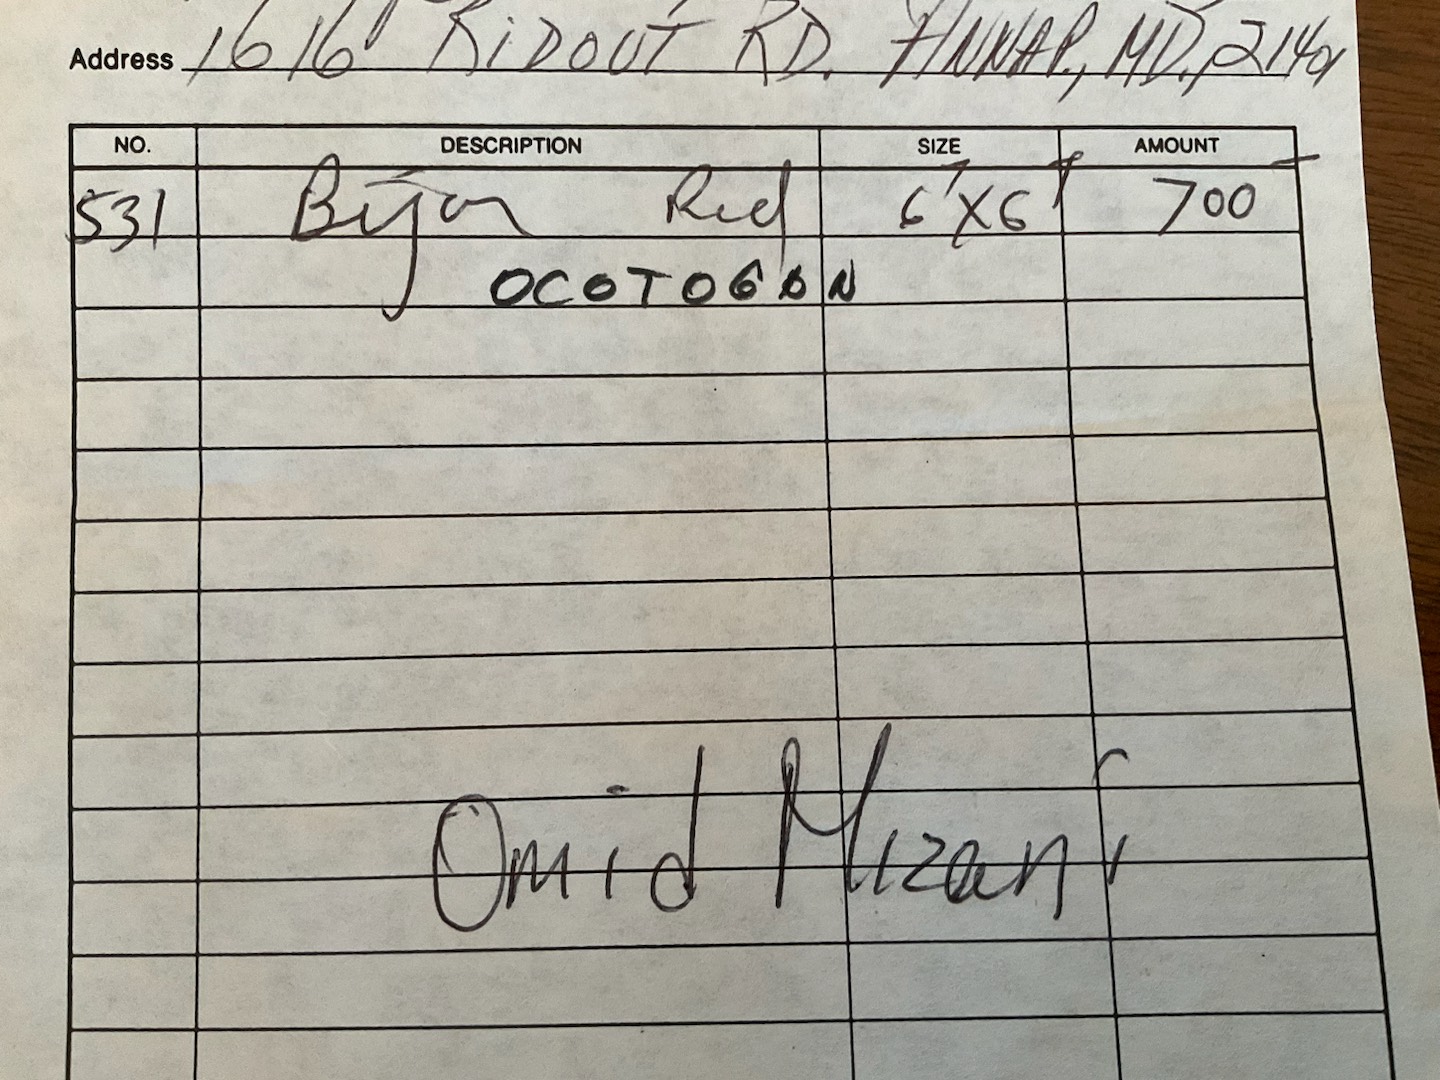 Address 1616 RIDOUT RD. ANNAP., MD., 21401
NO. DESCRIPTION SIZE AMOUNT
531 Bijan Red 6'X6' 700
OCOTOGON
Omid Mizani